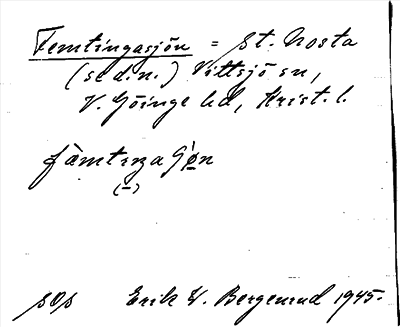 Femtingasjön = St. Nosta
(se d.n.) Vittsjö sn,
V. Göinge hd, Krist. l.
fämtıŋa
(–)
sjö Erik W. Bergenrud 1945.